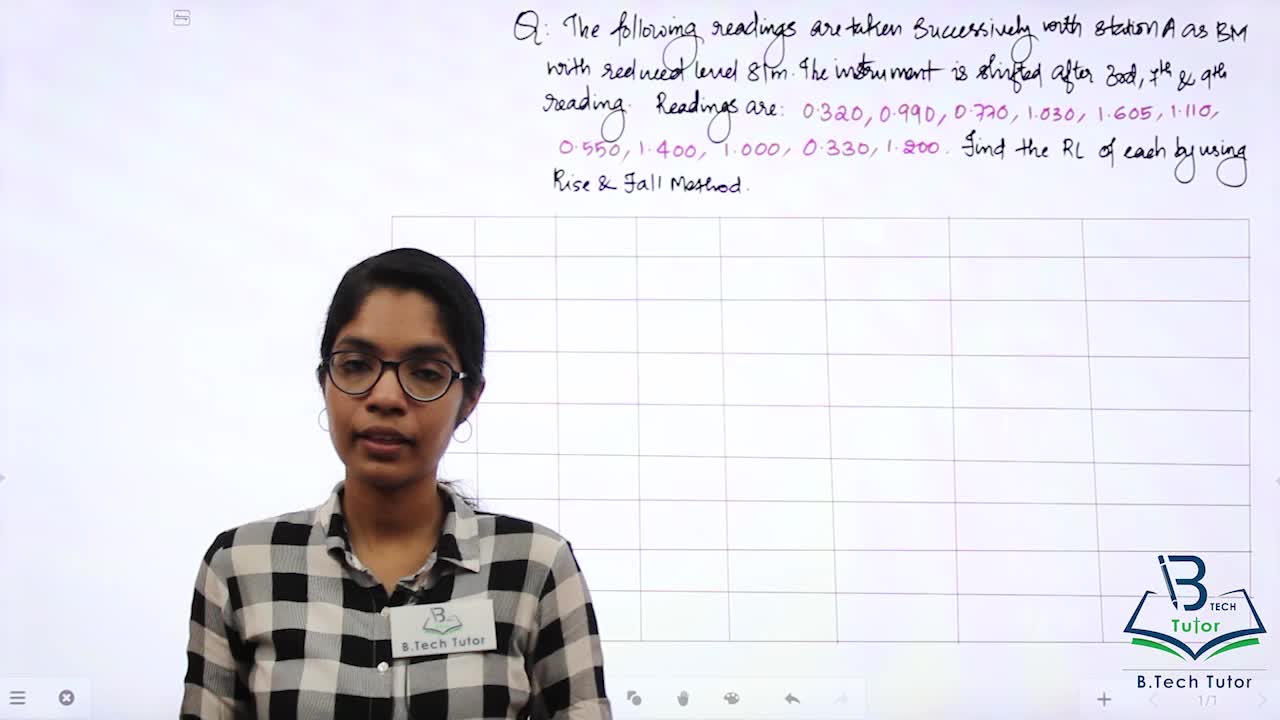 Q: The following readings are taken successively with station A as BM
with reduced level 81m. The instrument is shifted after 3rd, 7th & 9th
reading. Readings are: 0.320, 0.990, 0.770, 1.030, 1.605, 1.110,
0.550, 1.400, 1.000, 0.330, 1.200. Find the RL of each by using
Rise & Fall Method.
B
B.Tech Tutor
B
TECH
Tutor
B.Tech Tutor
1/1